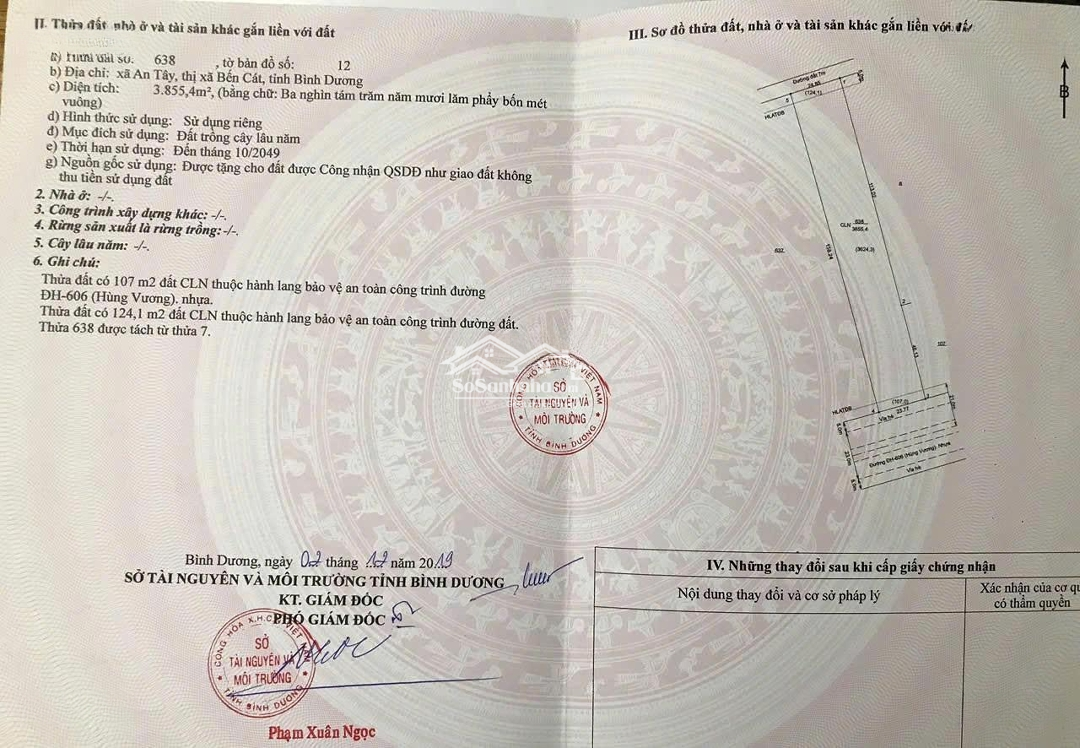 II. Thửa đất, nhà ở và tài sản khác gắn liền với đất
a) Thửa đất số: 638 , tờ bản đồ số: 12
b) Địa chỉ: xã An Tây, thị xã Bến Cát, tỉnh Bình Dương
c) Diện tích: 3.855,4m², (bằng chữ: Ba nghìn tám trăm năm mươi lăm phẩy bốn mét
vuông)
d) Hình thức sử dụng: Sử dụng riêng
đ) Mục đích sử dụng: Đất trồng cây lâu năm
e) Thời hạn sử dụng: Đến tháng 10/2049
g) Nguồn gốc sử dụng: Được tặng cho đất được Công nhận QSDĐ như giao đất không
thu tiền sử dụng đất
2. Nhà ở: -/-.
3. Công trình xây dựng khác: -/-.
4. Rừng sản xuất là rừng trồng: -/-.
5. Cây lâu năm: -/-.
6. Ghi chú:
Thửa đất có 107 m2 đất CLN thuộc hành lang bảo vệ an toàn công trình đường
ĐH-606 (Hùng Vương). nhựa.
Thửa đất có 124,1 m2 đất CLN thuộc hành lang bảo vệ an toàn công trình đường đất.
Thửa 638 được tách từ thửa 7.
SoSanhNha
CỘNG HÒA X.H.C.N VIỆT NAM
SỞ
TÀI NGUYÊN VÀ
MÔI TRƯỜNG
TỈNH BÌNH DƯƠNG
Bình Dương, ngày 02 tháng 12 năm 2019
SỞ TÀI NGUYÊN VÀ MÔI TRƯỜNG TỈNH BÌNH DƯƠNG
KT. GIÁM ĐỐC
PHÓ GIÁM ĐỐC
CỘNG HÒA X.H.C.N VIỆT NAM
SỞ
TÀI NGUYÊN VÀ
MÔI TRƯỜNG
TỈNH BÌNH DƯƠNG
Phạm Xuân Ngọc
III. Sơ đồ thửa đất, nhà ở và tài sản khác gắn liền với đất
B
Đường đất
(124,1)
HLATĐB
8
CLN
638
3855,4
(3624,3)
632
2
HLATĐB
4
(107,0)
3
Vỉa hè 23.77
Đường ĐH-606 (Hùng Vương), Nhựa
Vỉa hè
IV. Những thay đổi sau khi cấp giấy chứng nhận
Nội dung thay đổi và cơ sở pháp lý
Xác nhận của cơ qu
có thẩm quyền